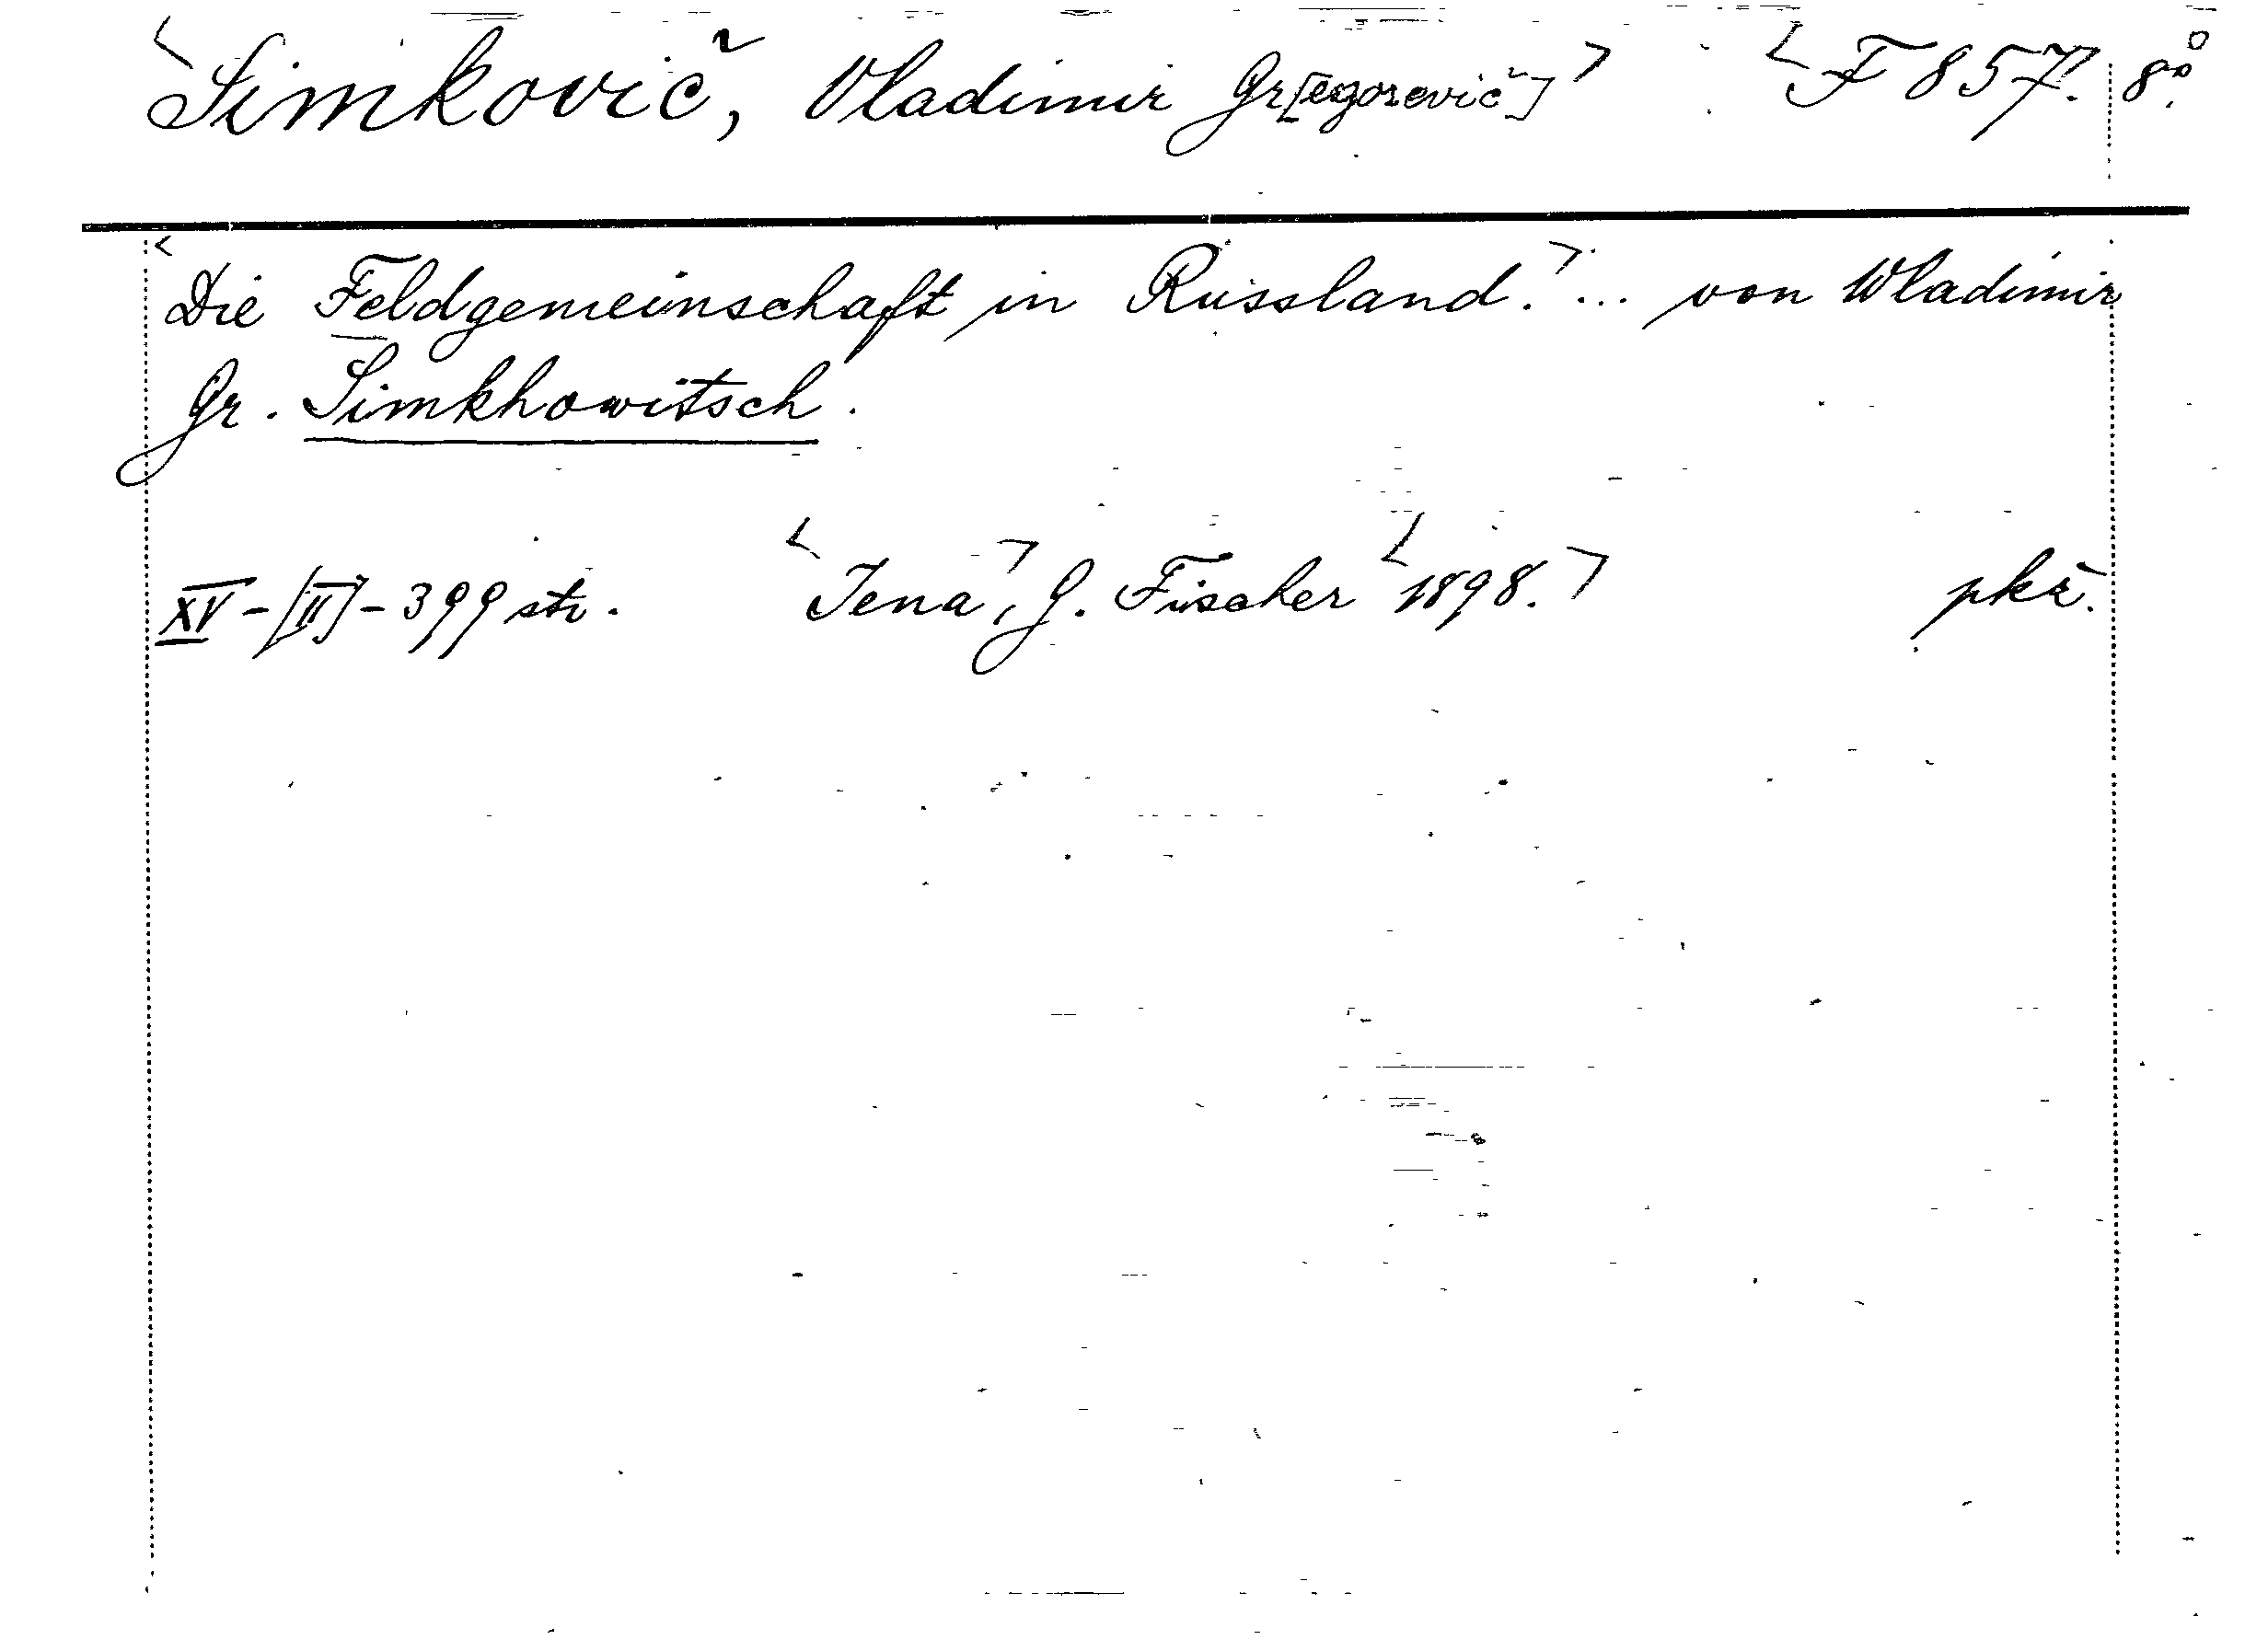 <Simkovič, Vladimir Gr[egorevič]> <F 857. 8⁰.
<Die Feldgemeinschaft in Russland.>... von Wladimir
Gr. Simkhowitsch.
XV-[II]-399 str. <Jena>, G. Fischer <1898.> pkž.